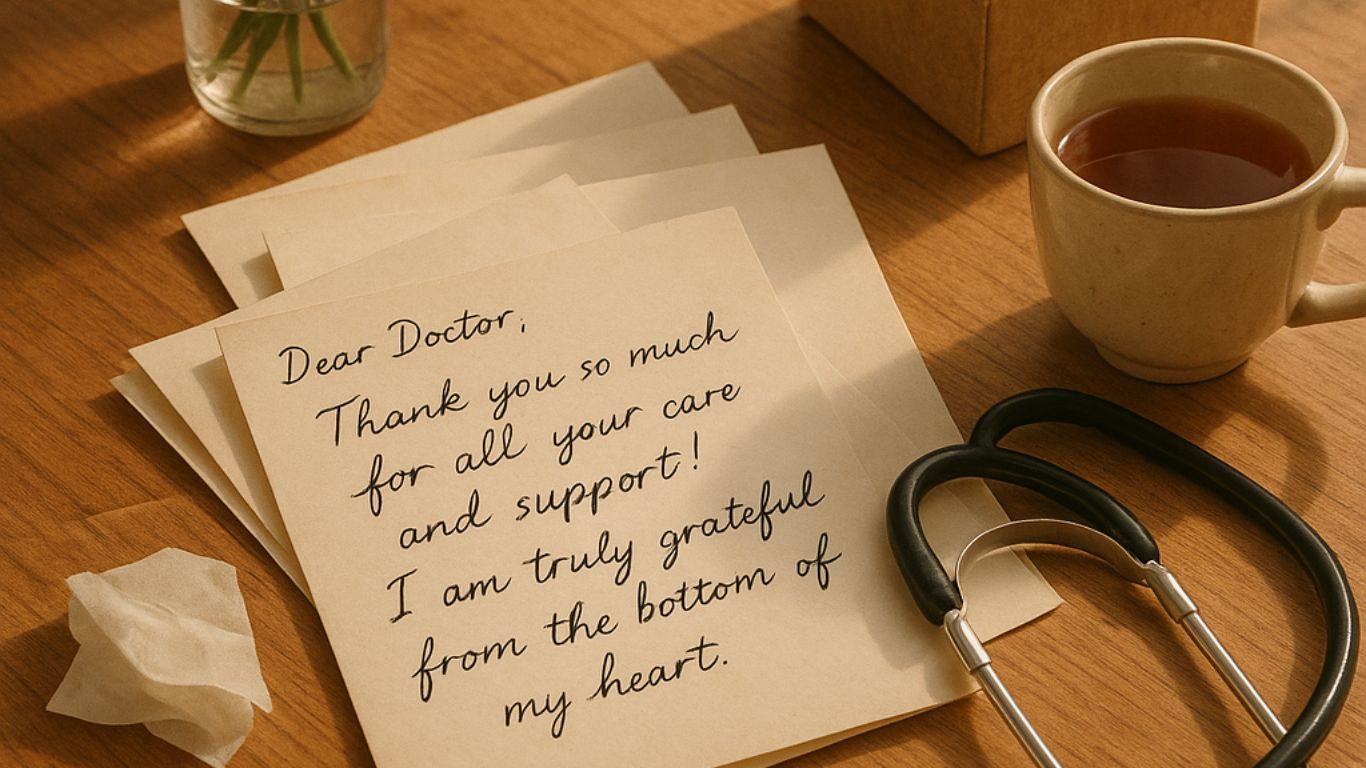 Dear Doctor,
Thank you so much
for all your care
and support!
I am truly grateful
from the bottom of
my heart.